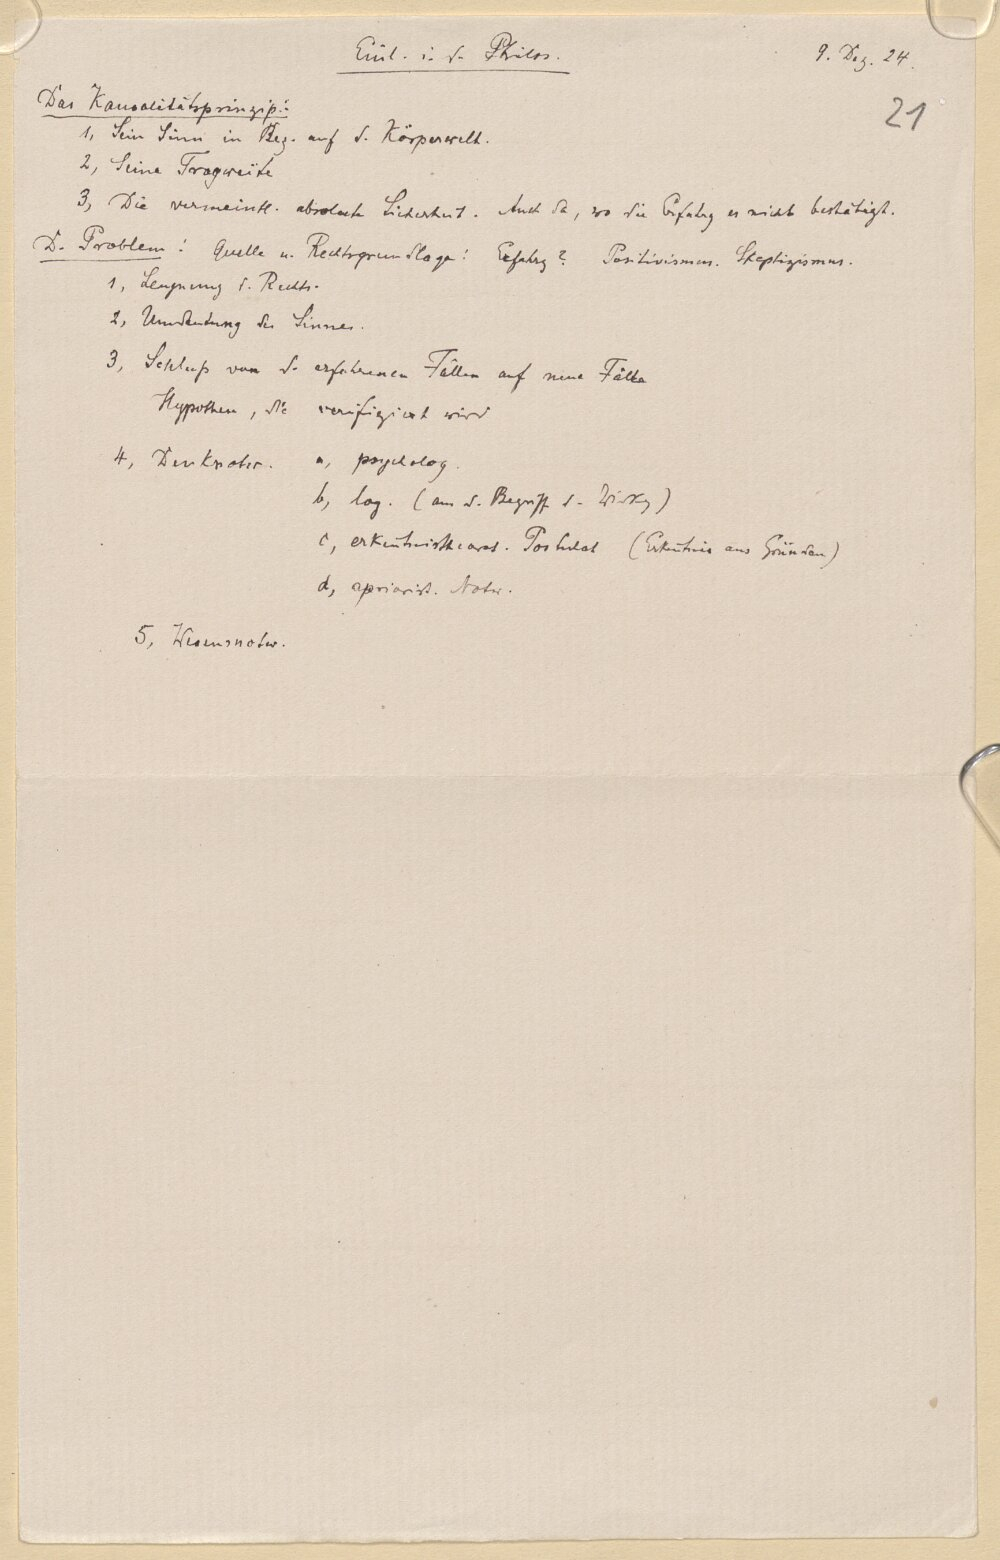 Einl. i. d. Philos.
9. Dez. 24.
21
Das Kausalitätsprinzip:
1, Sein Sinn in Bez. auf d. Körperwelt.
2, Seine Tragweite
3, Die vermeintl. absolute Sicherheit. Auch da, wo die Erfahrg es nicht bestätigt.
D. Problem: Quelle u. Rechtsgrundlage: Erfahrg? Positivismus. Skeptizismus.
1, Leugnung d. Rechts.
2, Umdeutung des Sinnes.
3, Schluß von d. erfahrenen Fällen auf neue Fälle
Hypothese, die verifiziert wird
4, Denknotw. a, psycholog.
b, log. (aus d. Begriff d. Wirkg)
c, erkenntnistheoret. Postulat (Erkenntnis aus Gründen)
d, apriorist. Notw.
5, Wesensnotw.